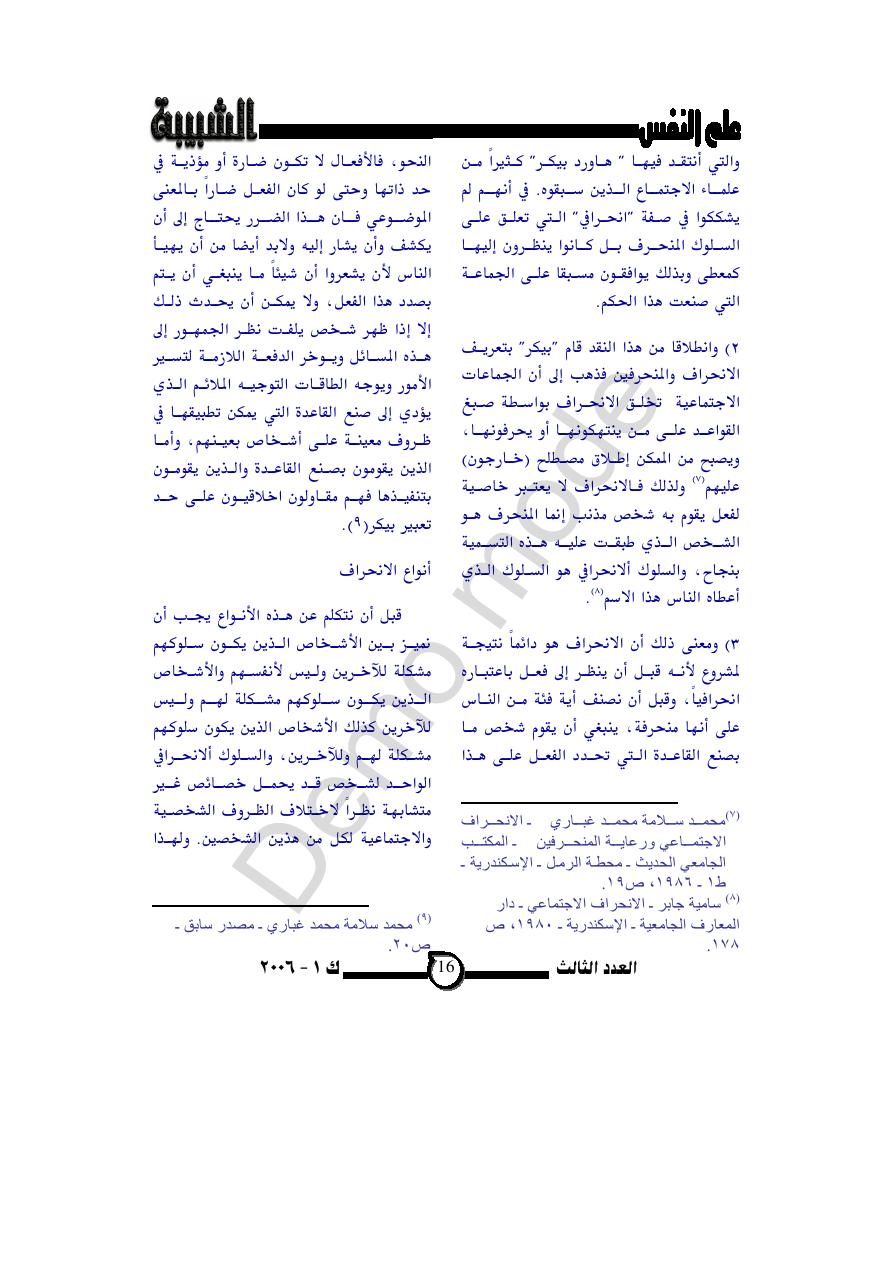 علم النفس
الشبيبة
والتي أنتقد فيها " هاورد بيكر" كثيراً من
علماء الاجتماع الذين سبقوه. في أنهم لم
يشككوا في صفة "انحرافي" التي تعلق على
السلوك المنحرف بل كانوا ينظرون إليها
كمعطى وبذلك يوافقون مسبقا على الجماعة
التي صنعت هذا الحكم.
٢) وانطلاقا من هذا النقد قام "بيكر" بتعريف
الانحراف والمنحرفين فذهب إلى أن الجماعات
الاجتماعية تخلق الانحراف بواسطة صبغ
القواعد على من ينتهكونها أو يحرفونها،
ويصبح من الممكن إطلاق مصطلح (خارجون)
عليهم(٧) ولذلك فالانحراف لا يعتبر خاصية
لفعل يقوم به شخص مذنب إنما المنحرف هو
الشخص الذي طبقت عليه هذه التسمية
بنجاح، والسلوك ألانحرافي هو السلوك الذي
أعطاه الناس هذا الاسم(٨).
٣) ومعنى ذلك أن الانحراف هو دائماً نتيجة
لمشروع لأنه قبل أن ينظر إلى فعل باعتباره
انحرافياً، وقبل أن نصنف أية فئة من الناس
على أنها منحرفة، ينبغي أن يقوم شخص ما
بصنع القاعدة التي تحدد الفعل على هذا
(٧)محمد سلامة محمد غباري ـ الانحراف
الاجتماعي ورعاية المنحرفين ـ المكتب
الجامعي الحديث ـ محطة الرمل ـ الإسكندرية ـ
ط١ ـ ١٩٨٦، ص١٩.
(٨) سامية جابر ـ الانحراف الاجتماعي ـ دار
المعارف الجامعية ـ الإسكندرية ـ ١٩٨٠، ص
١٧٨.
النحو، فالأفعال لا تكون ضارة أو مؤذية في
حد ذاتها وحتى لو كان الفعل ضاراً بالمعنى
الموضوعي فان هذا الضرر يحتاج إلى أن
يكشف وأن يشار إليه ولابد أيضا من أن يهيأ
الناس لأن يشعروا أن شيئاً ما ينبغي أن يتم
بصدد هذا الفعل، ولا يمكن أن يحدث ذلك
إلا إذا ظهر شخص يلفت نظر الجمهور إلى
هذه المسائل ويوخر الدفعة اللازمة لتسير
الأمور ويوجه الطاقات التوجيه الملائم الذي
يؤدي إلى صنع القاعدة التي يمكن تطبيقها في
ظروف معينة على أشخاص بعينهم، وأما
الذين يقومون بصنع القاعدة والذين يقومون
بتنفيذها فهم مقاولون اخلاقيون على حد
تعبير بيكر(٩).
أنواع الانحراف
قبل أن نتكلم عن هذه الأنواع يجب أن
نميز بين الأشخاص الذين يكون سلوكهم
مشكلة للآخرين وليس لأنفسهم والأشخاص
الذين يكون سلوكهم مشكلة لهم وليس
للآخرين كذلك الأشخاص الذين يكون سلوكهم
مشكلة لهم وللآخرين، والسلوك ألانحرافي
الواحد لشخص قد يحمل خصائص غير
متشابهة نظراً لاختلاف الظروف الشخصية
والاجتماعية لكل من هذين الشخصين. ولهذا
(٩) محمد سلامة محمد غباري ـ مصدر سابق ـ
ص٢٠.
العدد الثالث
16
ك ١ - ٢٠٠٦
Demo mode